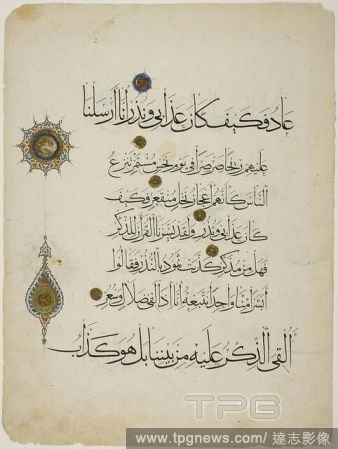 عاد فكيف كان عذابي ونذر انا ارسلنا
عليهم ريحا صرصرا في يوم نحس مستمر تنزع
الناس كانهم اعجاز نخل منقعر فكيف
كان عذابي ونذر ولقد يسرنا القرآن للذكر
فهل من مدكر كذبت ثمود بالنذر فقالوا
ابشرا منا واحدا نتبعه انا اذا لفي ضلال وسعر
أالقي الذكر عليه من بيننا بل هو كذاب
TPG
www.tpgnews.com/達志影像